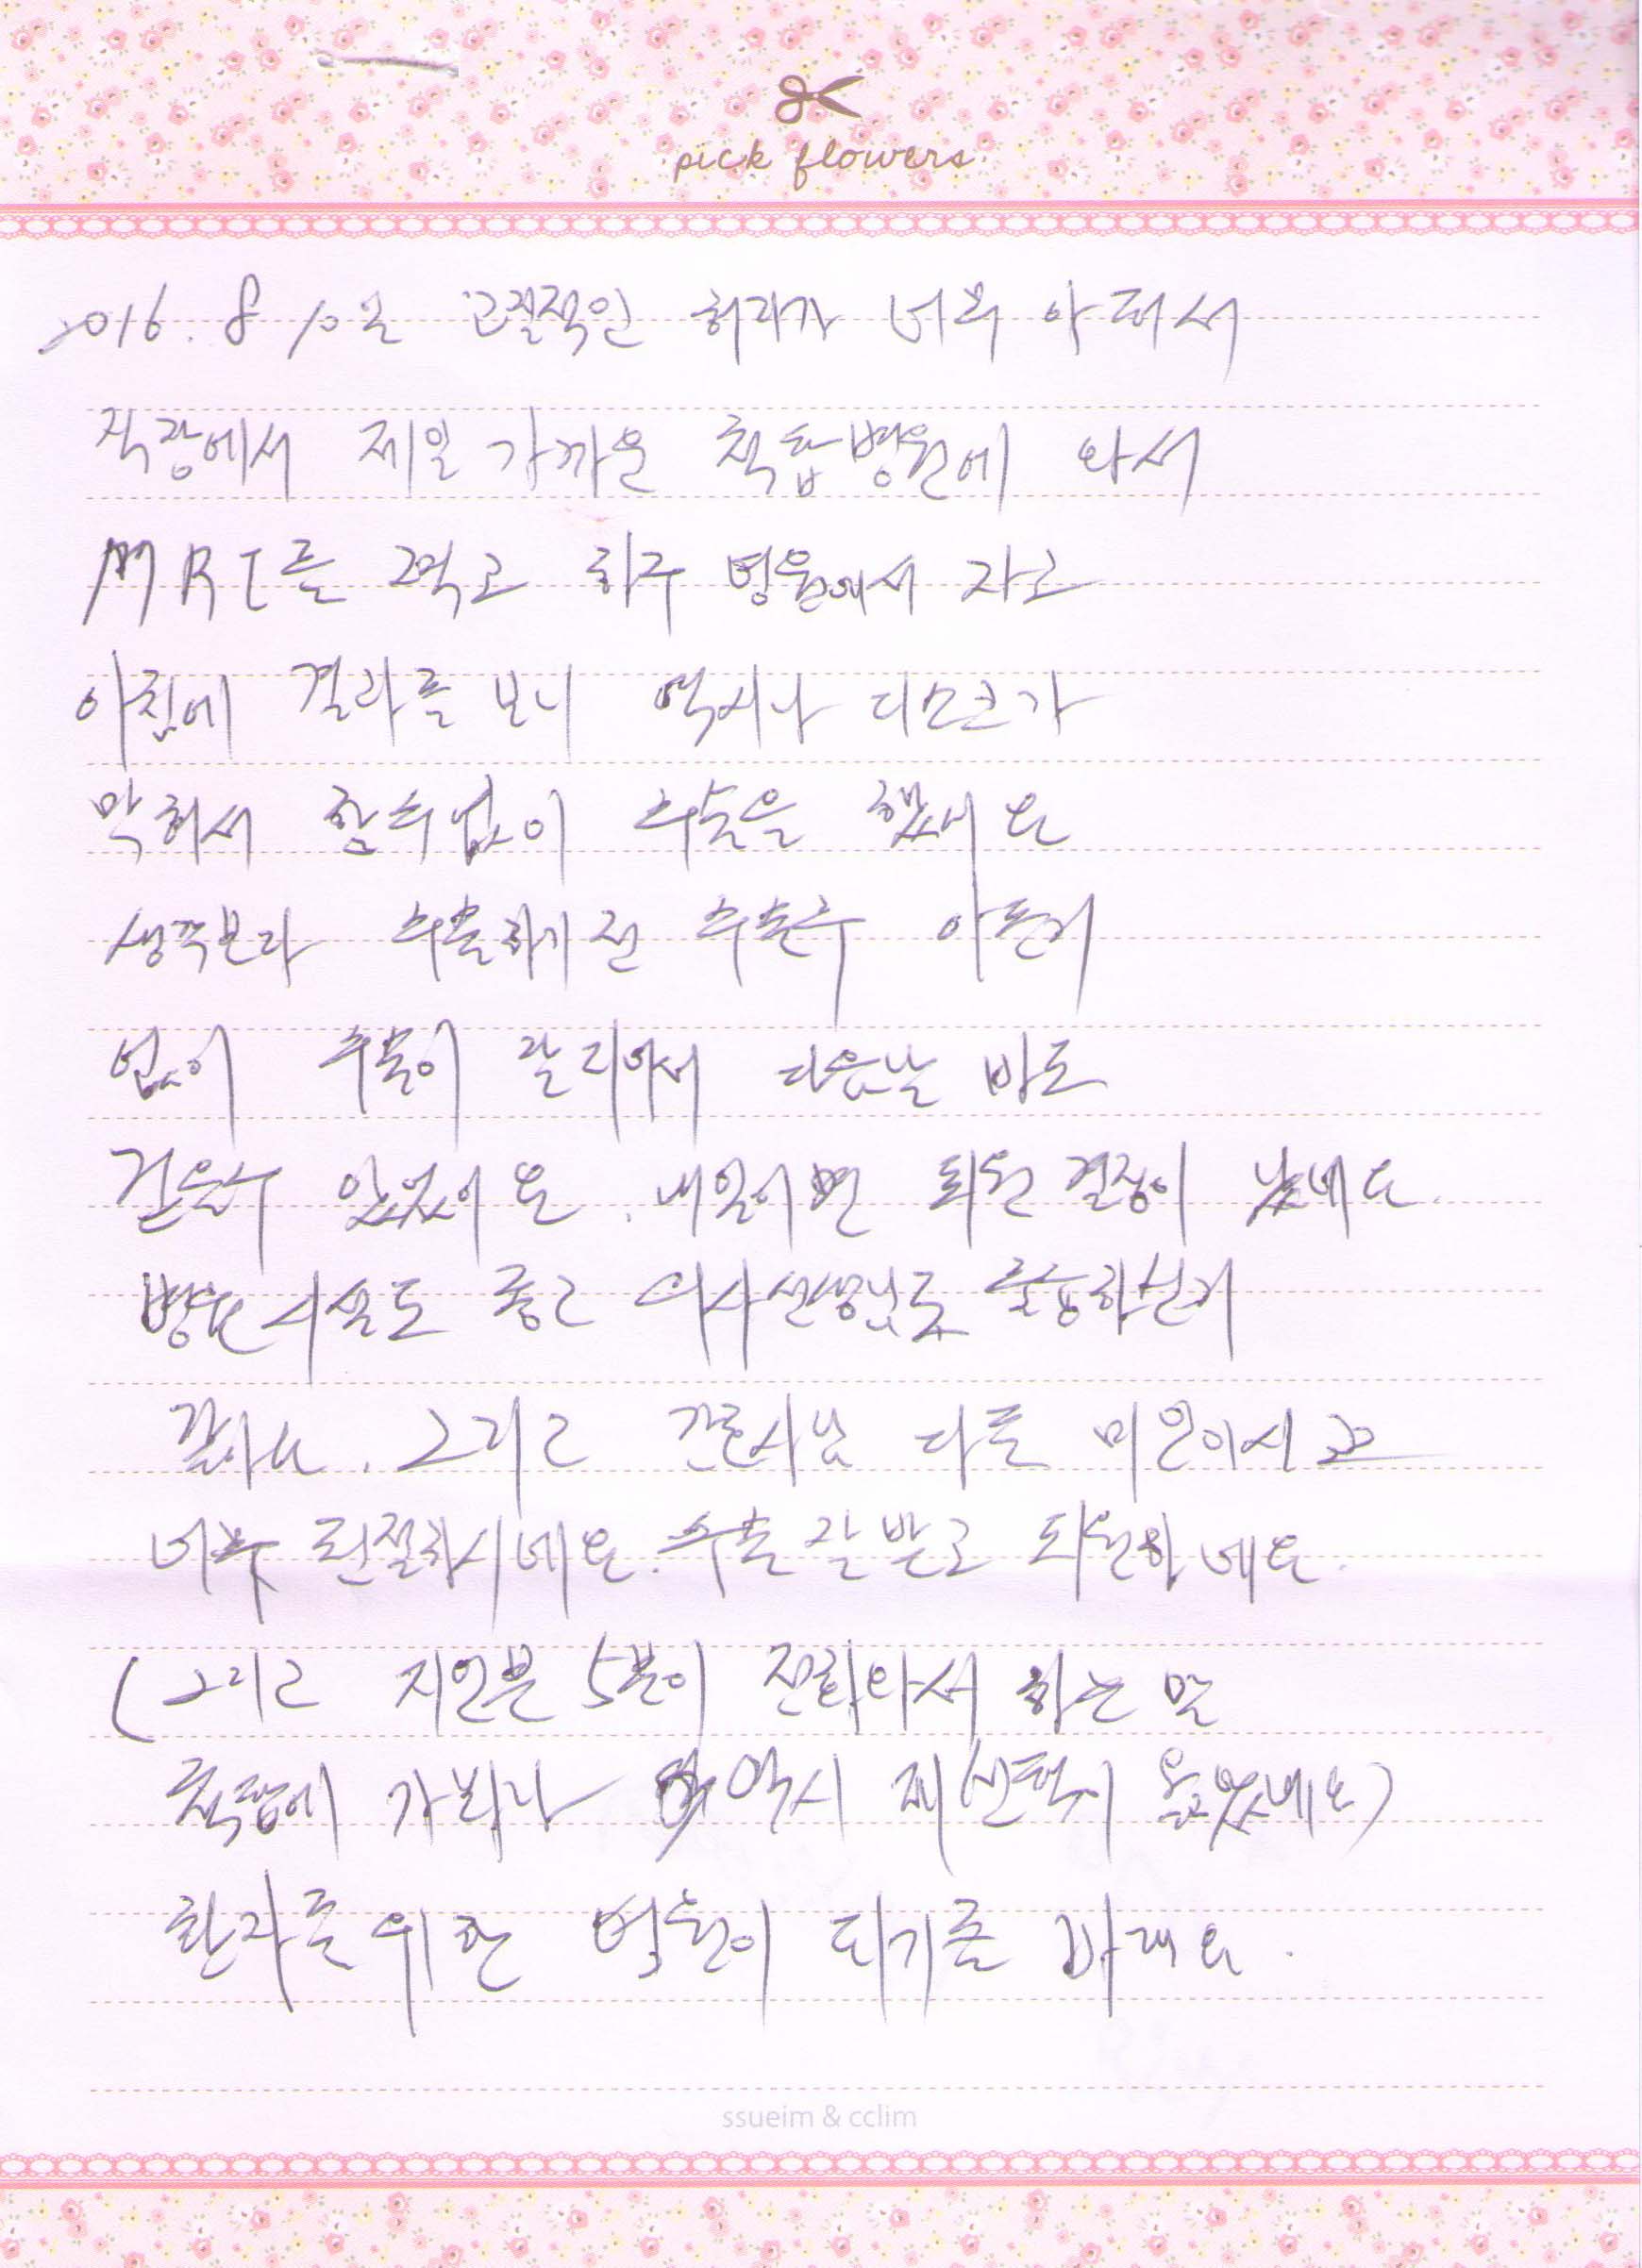 pick flowers
2016. 8 10일 고질적인 허리가 너무 아퍼서
직장에서 제일 가까운 척탑병원에 와서
MRI를 찍고 하루 병원에서 자고
아침에 결과를 보니 역시나 디스크가
막혀서 할수없이 수술을 했어요
생각보다 수술하기전 수술후 아픈거
없이 수술이 잘 되어서 다음날 밤도
걸을수 있었어요. 내일이면 퇴원 결정이 났네요.
병원시설도 좋고 의사선생님도 훌륭하신거
같아요. 그리고 간호사님 다들 미인이시고
너무 친절하시네요. 수술 잘 받고 퇴원하네요.
(그리고 지인분 5분이 전화와서 하는 말
척탑에 가봐라 역시 제 선택이 옳았네요)
환자를 위한 병원이 되기를 바래요.
ssueim & cclim